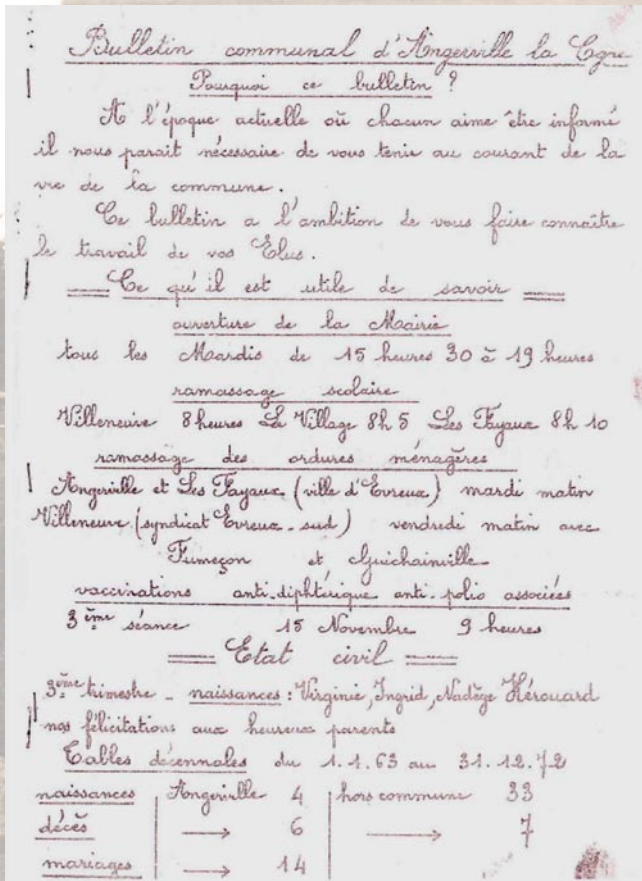 Bulletin communal d'Angerville la Cgne
Pourquoi ce bulletin ?
A l'époque actuelle où chacun aime être informé
il nous parait nécessaire de vous tenir au courant de la
vie de la commune.
Ce bulletin a l'ambition de vous faire connaître
le travail de vos Elus.
Ce qu'il est utile de savoir
ouverture de la Mairie
tous les Mardis de 15 heures 30 à 19 heures
ramassage scolaire
Villeneuve 8 heures Le Village 8h 5 Les Fayaux 8h 10
ramassage des ordures ménagères
Angerville et Les Fayaux (ville d'Evreux) mardi matin
Villeneuve (syndicat Evreux-sud) vendredi matin avec
Fumeçon et Guichainville
vaccinations anti-diphtérique anti-polio associées
3ème séance 15 Novembre 9 heures
Etat civil
3ème trimestre - naissances : Virginie, Ingrid, Nadège Hérouard
nos félicitations aux heureux parents
Tables décennales du 1.1.63 au 31.12.72
naissances Angerville 4 hors commune 33
décès → 6 → 7
mariages → 14